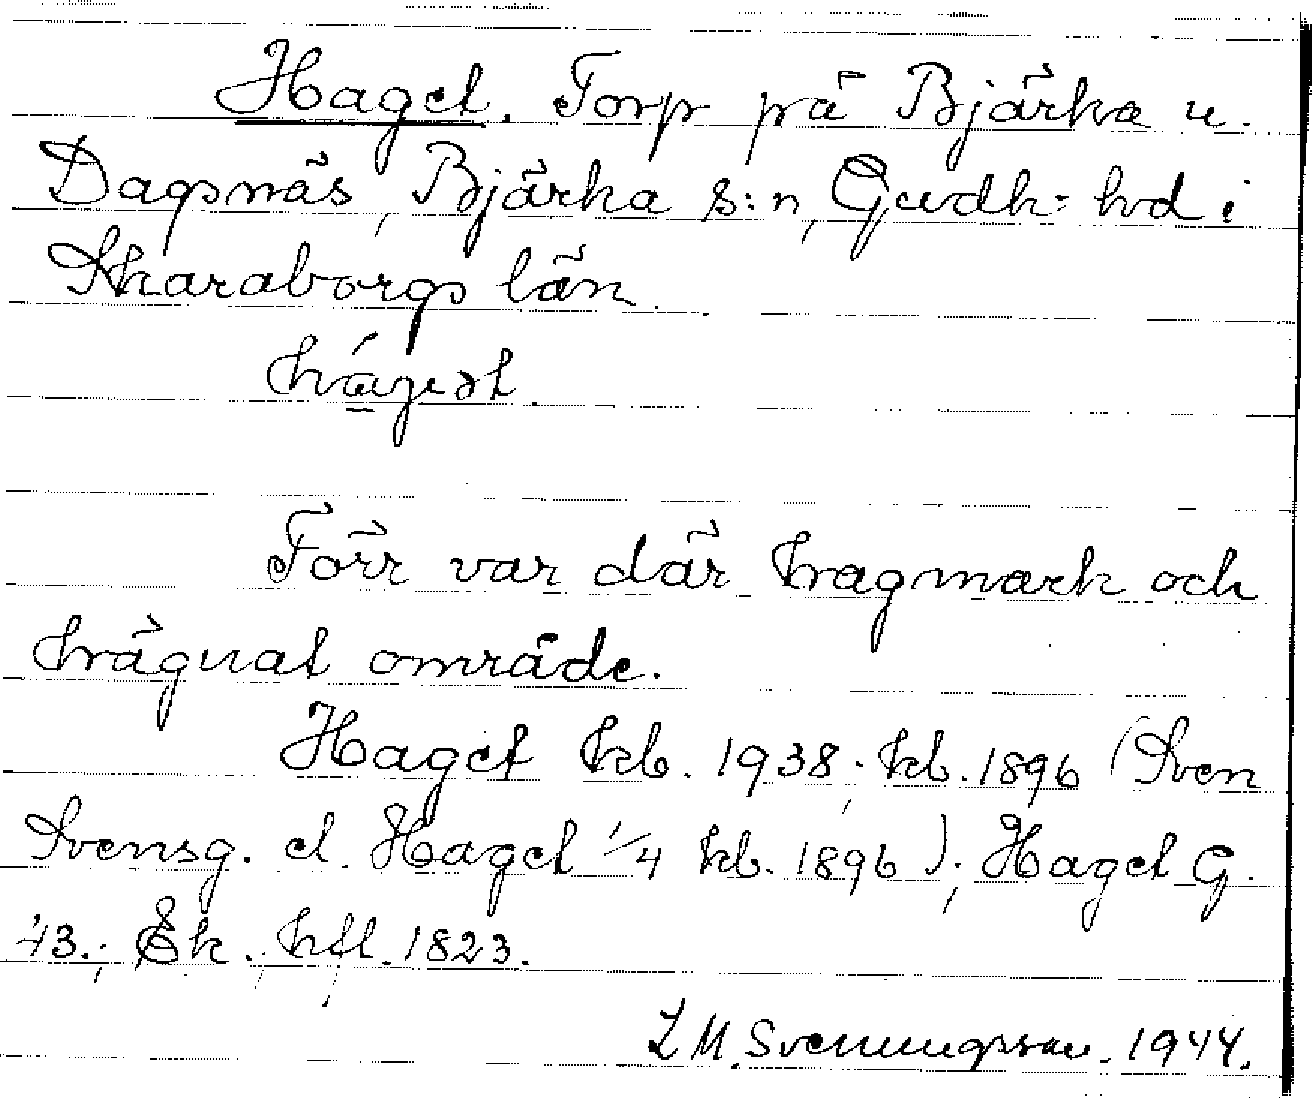 Haget. Torp på Bjärka u.
Dagsnäs, Bjärka s:n, Gudh: hd i
Skaraborgs län.
Förr var där hagmark och
området.
Haget kb. 1938; kb. 1896 (Sven
Svensg. el. Haget 1/4 kb. 1896); Haget G.
43.; Ek.; 1823.
L M. Svenungsson. 1944.